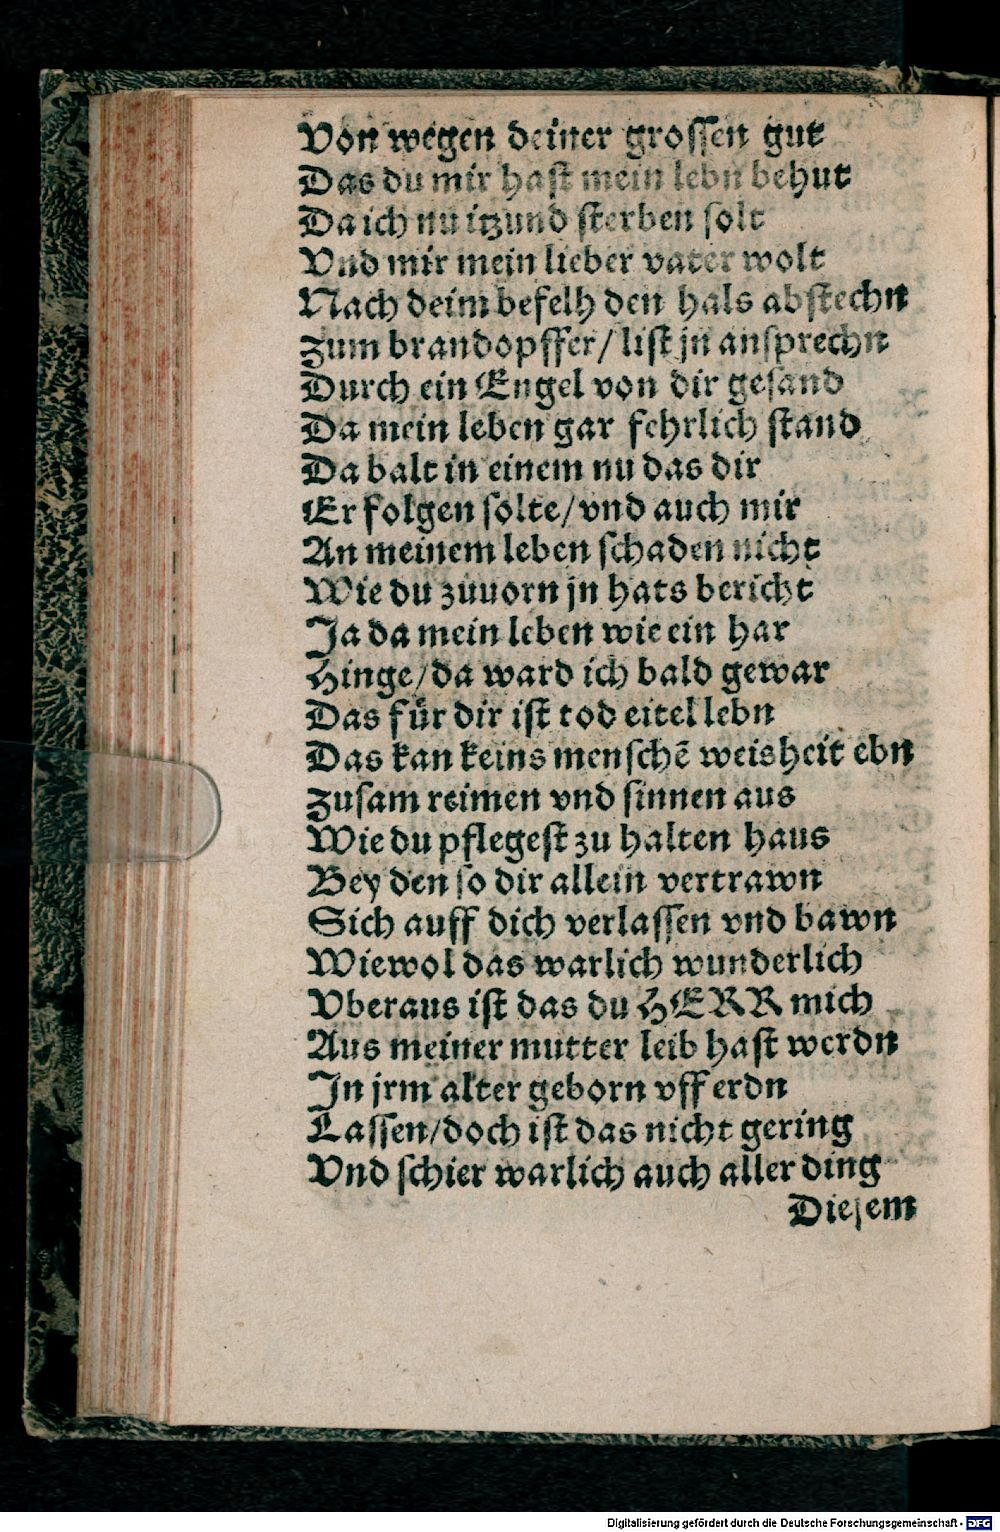 Von wegen deiner grossen gut
Das du mir hast mein lebn behut
Da ich nu itzund sterben solt
Vnd mir mein lieber vater wolt
Nach deim befelh den hals abstechn
Zum brandopffer/ list jn ansprechn
Durch ein Engel von dir gesand
Da mein leben gar fehrlich stand
Da balt in einem nu das dir
Er folgen solte/vnd auch mir
An meinem leben schaden nicht
Wie du zuuorn jn hats bericht
Ja da mein leben wie ein har
Hinge/da ward ich bald gewar
Das für dir ist tod eitel lebn
Das kan keins menschē weisheit ebn
Zusam reimen vnd sinnen aus
Wie du pflegest zu halten haus
Bey den so dir allein vertrawn
Sich auff dich verlassen vnd bawn
Wiewol das warlich wunderlich
Vberaus ist das du HERR mich
Aus meiner mutter leib hast werdn
In jrm alter geborn vff erdn
Lassen/doch ist das nicht gering
Vnd schier warlich auch aller ding
Diesem
Digitalisierung gefördert durch die Deutsche Forschungsgemeinschaft - DFG